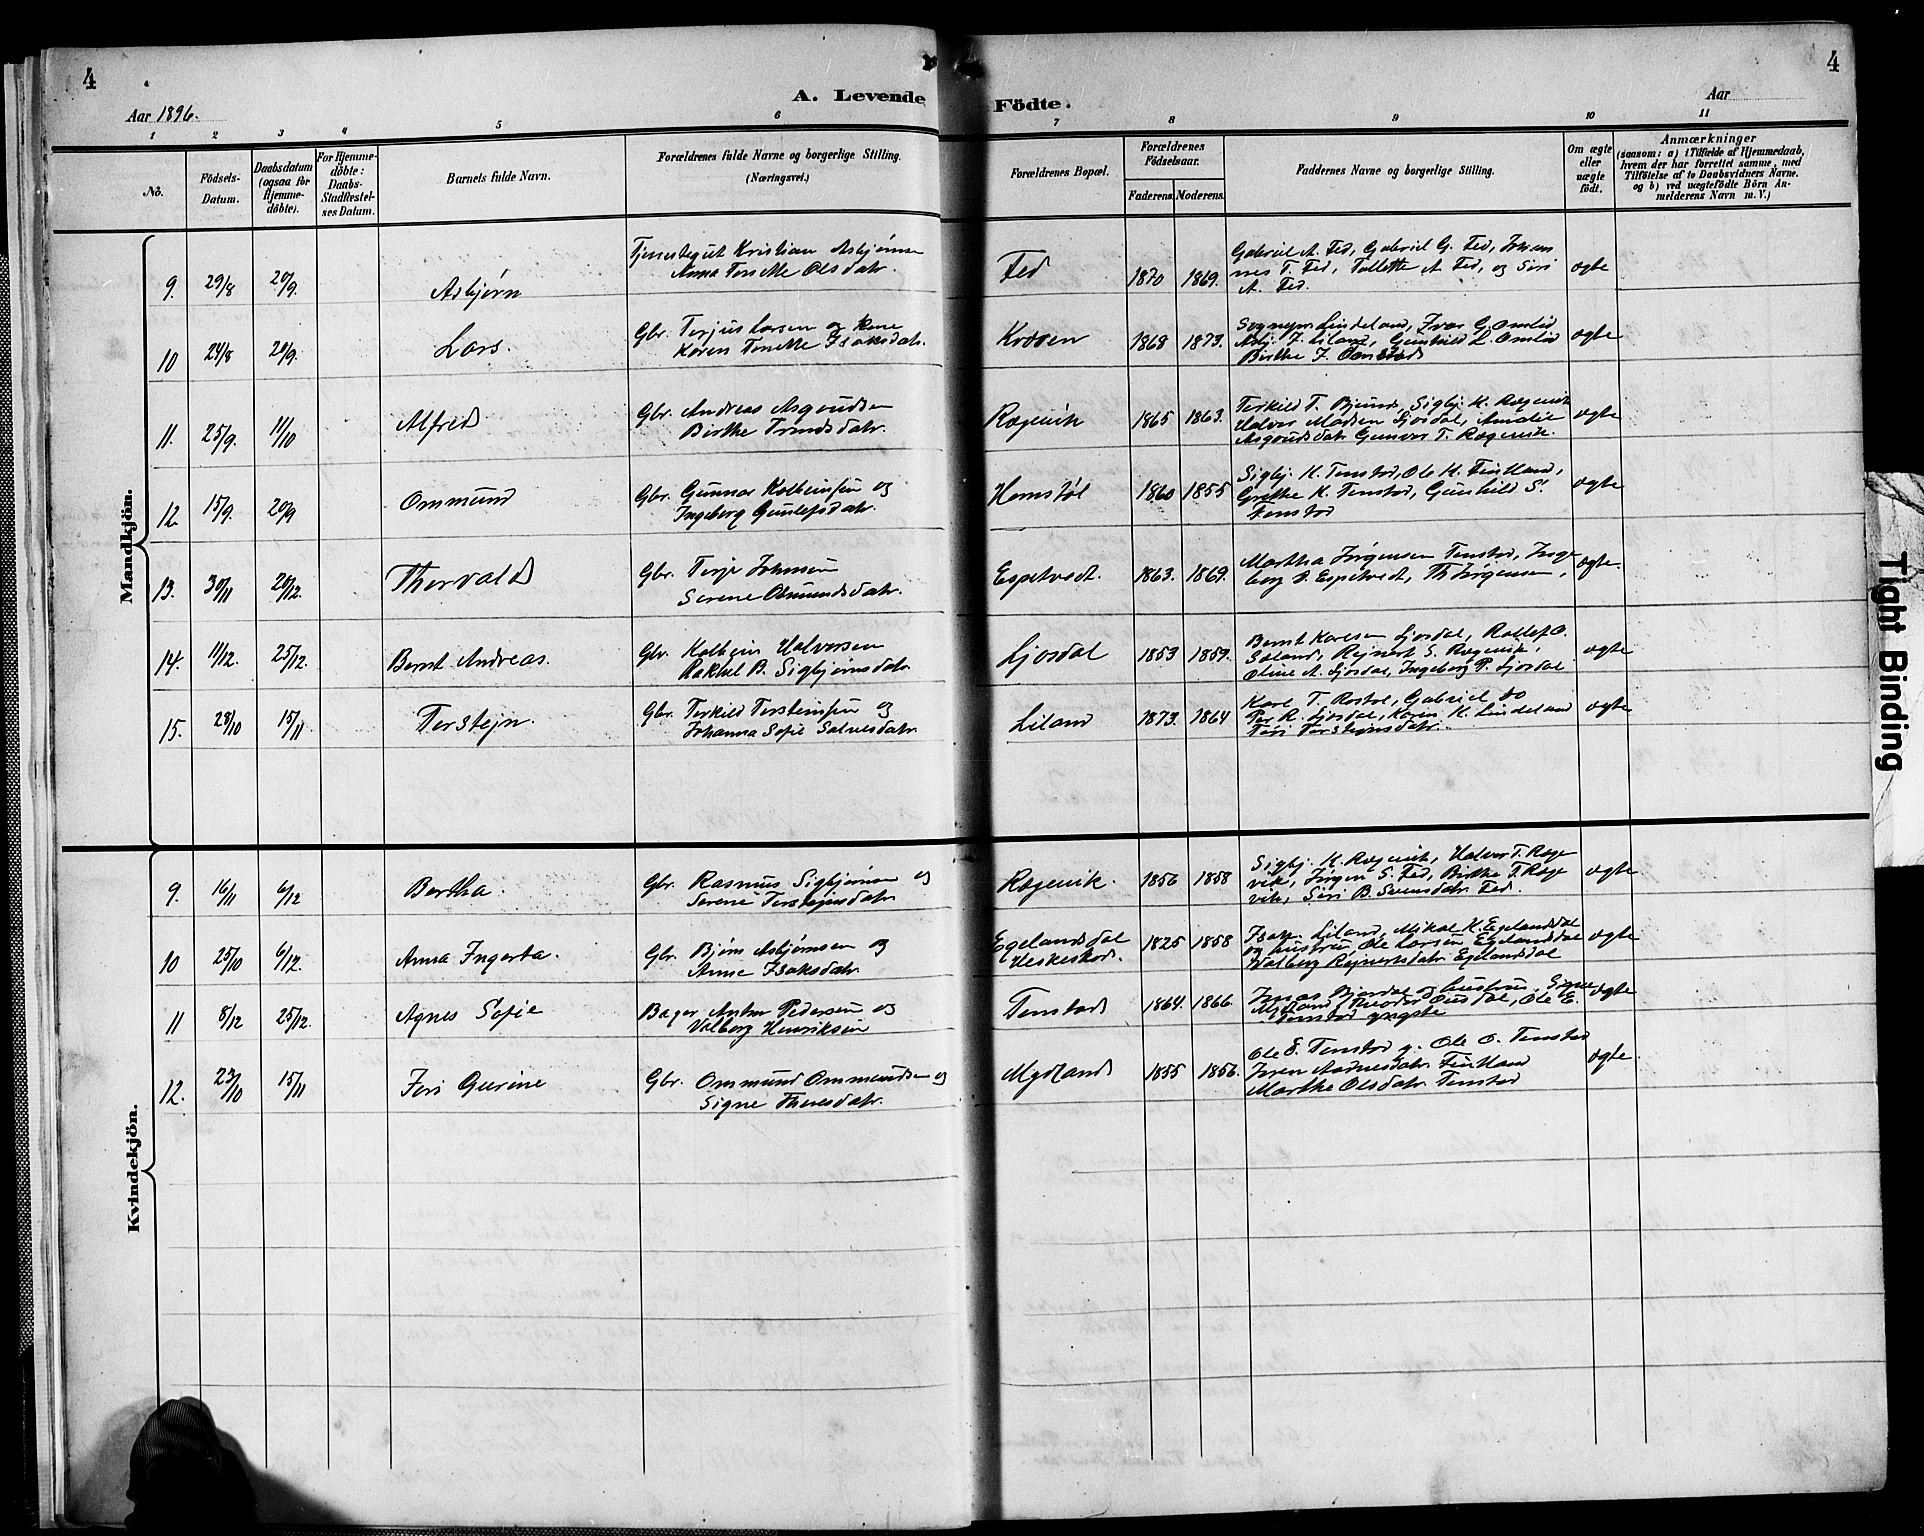 4
4
Aar 1896.
A. Levende Födte.
Aar
1 2 3 4 5 6 7 8 9 10 11
No.
Födsels-
Datum.
Daabsdatum
(ogsaa for
Hjemme-
döbte).
For Hjemme-
döbte:
Daabs-
Stadfæstel-
ses Datum.
Barnets fulde Navn.
Forældrenes fulde Navne og borgerlige Stilling.
(Næringsvei.)
Forældrenes Bopæl.
Forældrenes
Födselsaar.
Faderens. Moderens.
Faddernes Navne og borgerlige Stilling.
Om ægte
eller
uægte
födt.
Anmærkninger
(saasom: a) i Tilfælde af Hjemmedaab,
hvem der har forrettet samme, med
Tilföielse af to Daabsvidners Navne.
og b) ved uægtefödte Börn An-
melderens Navn m. V.)
Mandkjön.
9. 29/8 20/9. Asbjørn
Tjenestegut Kristian Asbjørnsen
Anna Tonette Olsdatr.
Fed 1870 1869.
Gabriel A. Fed, Gabriel G. Fed, Johan
nes T. Fed, Tallette A Fed, og Siri
A. Fed.
ægte
10 24/8 20/9. Lars.
Gbr. Terjus Larsen og
Karen Tonette Isaksdatr.
1868 1873.
Lindeland, Ivar G. Omlid
Asbj. J. Liland, Gunhild L. Omlid
Birthe J.
ægte
11. 25/9. 11/10 Alfred
Gbr. Andreas Asgoudsen
Birthe Trondsdatr.
Rægevik 1865 1863.
Terkild T. Bjuno, Sigbj. K. Rægevik
Halvor Madsen Ljosdal, Amalie
Asgoudsdatr Gunvor T. Rægevik.
ægte
12. 15/9. 20/9 Ommund
Gbr. Gunnar Kolbeinsen og
Ingeborg Gunlefsdatr.
Homstøl 1860 1855
Sigbj. K. Tonstad, Ole K. Fintland,
Grethe K. Tonstad, Gunhild S.
Tonstad
ægte
13. 30/11 20/12. Thorvald
Gbr. Terje Johnsen
Serene Osmundsdatr.
Espetvedt. 1863. 1869.
Martha Jørgensen Tonstad, Inge
borg S. Espetvedt, Th Jørgensen,
ægte.
14. 11/12. 25/12. Bernt Andreas.
Gbr. Kolbein Halvorsen
Rakkel B. Sigbjørnsdatr
Ljosdal 1853 1859.
Bernt Karlsen Ljosdal, Rollef O.
Soland, Rejnert S. Rægevik,
Oline A. Ljosdal, Ingeborg P. Ljosdal
ægte
15. 28/10 15/11. Terstejn.
Gbr. Terkild Tersteinsen og
Johanna Sofie Salvesdatr
Liland 1873. 1864
Karl T. Rostøl, Gabriel do
Per R. Ljosdal, Karen K. Lindeland
Siri Terstejnsdatr.
ægte
Kvindekjön.
9. 16/11 6/12 Bertha.
Gbr. Rasmus Sigbjørnsen og
Serene Terstejnsdatr
Rægevik. 1856 1858
Sigbj. K. Rægevik, Halvor T. Ræge
vik, Jørgen S. Fed, Birthe T. Ræge
vik, Siri B. Svensdatr Fed.
ægte
10 25/10 6/12. Anna Ingerta.
Gbr. Bjørn Asbjørnsen og
Anne Isaksdatr.
Egelandsdal
Heskestad. 1825 1858
Isak Liland, Mikal K. Egelandsdal
og hustru Ole Larsen Egelandsdal
Valborg Rejnertsdatr Egelandsdal
ægte
11 8/12 25/12. Agnes Sofie
Bager Anton Pedersen og
Valborg Henriksen
Tonstad 1864. 1866.
Jonas Bjordal og hustru, Signe
Mydland, Theodor Ousdal, Ole E.
Tonstad yngste
ægte
12. 23/10 15/11 Jori Gurine
Gbr. Ommund Ommundsen og
Signe Thoresdatr.
Mydland 1855 1856.
Ole E. Tonstad y. Ole O. Tonstad
Aadnesdatr Fintland
Marthe Olsdatr Tonstad
ægte
Tight Binding